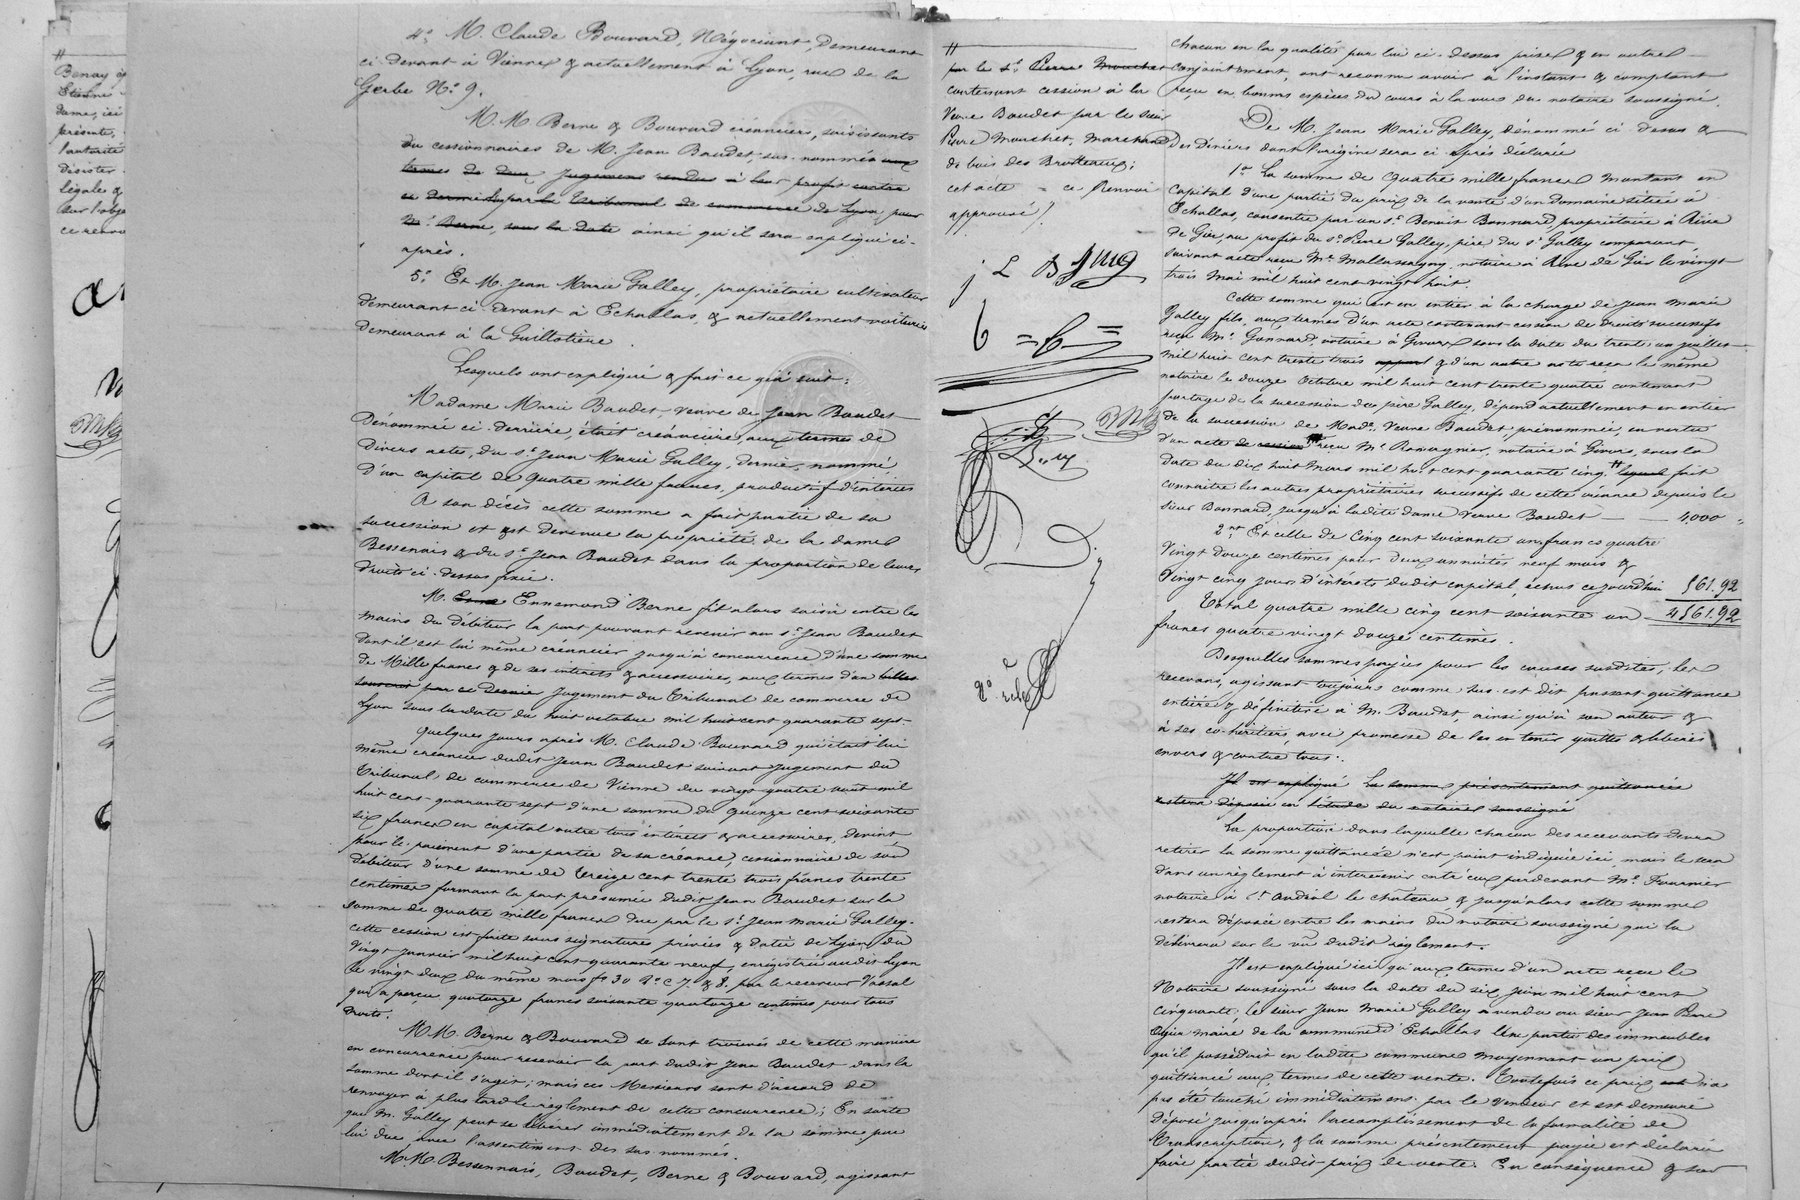 4º M. Claude Bouvard, Négociant, Demeurant
ci devant à Vienne & actuellement à Lyon, rue de la
Gerbe Nº 9.
M.M Berne & Bouvard créanciers, saisissants
ou cessionnaires de M. Jean Baudet, sus-nommé aux
termes de deux jugemens rendus à leur profit contre
ce dernier par le Tribunal de commerce de Lyon, pour
Mr. Berne, sous la date ainsi qu'il sera expliqué ci-
après.
5º Et M. Jean Marie Galley, propriétaire cultivateur
demeurant ci devant à Echallas, & actuellement voiturier
demeurant à la Guillotière.
Lesquels ont expliqué & fait ce qui suit:
Madame Marie Baudet, veuve de Jean Baudet
Dénommée ci-derrière, était créancière, aux termes de
Divers actes, du sr. Jean Marie Galley, dernier nommé,
D'un capital de quatre mille francs, productif d'intérêts
A son décès cette somme a fait partie de sa
succession et est devenue la propriété de la dame
Bessenais & du sr. Jean Baudet dans la proportion de leurs
Droits ci-dessus fixée.
M. Ennemond Berne fit alors saisir entre les
mains du débiteur la part pouvant revenir au sr. Jean Baudet
dont il est lui même créancier jusqu'à concurrence d'une somme
de Mille francs & de ses intérêts & accessoires, aux termes d'un billet
souscrit par ce dernier jugement du Tribunal de commerce de
Lyon sous la date du huit octobre mil huit cent quarante sept.
Quelques jours après M. Claude Bouvard qui était lui
même créancier dudit Jean Baudet suivant jugement du
Tribunal de commerce de Vienne du vingt quatre août mil
huit cent quarante sept d'une somme de quinze cent soixante
six francs en capital outre tous intérêts & accessoires, devint
pour le paiement d'une partie de sa créance, cessionnaire de son
débiteur d'une somme de treize cent trente trois francs trente
centimes formant la part présumée dudit Jean Baudet sur la
somme de quatre mille francs due par le sr. Jean Marie Galley.
cette cession est faite sous signatures privées & datée de Lyon du
Vingt janvier mil huit cent quarante neuf, enregistrée audit Lyon
le vingt deux du même mois fº 30 Rº c 7. & 8. par le receveur Vassal
qui a perçu quatorze francs soixante quatorze centimes pour tous
Droits.
MM. Berne & Bouvard se sont trouvés de cette manière
en concurrence pour recevoir la part dudit Jean Baudet dans la
somme dont il s'agit; mais ces Messieurs sont d'accord de
renvoyer à plus tard le règlement de cette concurrence; En sorte
que M. Galley peut se libérer immédiatement de la somme par
lui due, avec l'assentiment des sus nommés.
M.M. Bessennais, Baudet, Berne & Bouvard, agissant
par le sr. Pierre Mouchet
contenant cession à la
Veuve Baudet par le sieur
Pierre Mouchet, marchand
de bois des Brotteaux;
cet acte = ce Renvoi
approuvé /.
chacun en la qualité par lui ci-dessus prise & en outre
conjointement, ont reconnu avoir à l'instant & comptant
reçu en bonnes espèces du cours à la vue du notaire soussigné,
De M. Jean Marie Galley, dénommé ci dessus &
Des Déniers dont l'origine sera ci après déclarée
1º La somme de quatre mille francs montant en
capital d'une partie du prix de la vente d'un domaine situé à
Echallas, consentie par un sr. Benoit Bonnard, propriétaire à Rive
de Gier, au profit du sr. Pierre Galley, père du sr Galley comparant,
suivant acte reçu Me. Mallassagny, notaire à Rive de Gier le vingt
trois mai mil huit cent vingt huit.
Cette somme qui est en entier à la charge de Jean Marie
Galley fils, aux termes d'un acte contenant cession de droits successifs
reçu Me. Gonnard, notaire à Givors sous la date du trente un juillet
mil huit cent trente trois & d'un autre acte reçu le même
notaire le douze Octobre mil huit cent trente quatre contenant
partage de la succession du père Galley, dépend actuellement en entier
de la succession de Made. Veuve Baudet, prénommée, en vertu
d'un acte de cession reçu Me. Romagnier, notaire à Givors, sous la
date du dix huit Mars mil huit cent quarante cinq, # lequel fait
connaître les autres propriétaires successifs de cette créance depuis le
sieur Bonnard, jusqu'à ladite dame Veuve Baudet — 4,000 "
2nt. Et celle de Cinq cent soixante un francs quatre
Vingt douze centimes pour deux annuités neuf mois &
Vingt cinq jours d'intérêts dudit capital, échus ce jourd'hui 561.92
Total quatre mille cinq cent soixante un 4561.92
francs quatre vingt douze centimes.
Desquelles sommes payées pour les causes susdites, les
recevans, agissant toujours comme sus-est dit passent quittance
entière & définitive à M. Baudet, ainsi qu'à son auteur &
à ses co-héritiers, avec promesse de les en tenir quittes & libérés
envers & contre tous.
Il est expliqué La somme présentement quittancée
restera déposée en l'étude du notaire soussigné
La proportion dans laquelle chacun des recevants devra
retirer la somme quittancée n'est point indiquée ici, mais le sera
dans un règlement à intervenir entr'eux pardevant Me. Fournier
notaire à St Andéol le chateau & jusqu'alors cette somme
restera déposée entre les mains du notaire soussigné qui la
délivrera sur le vu dudit règlement.
Il est expliqué ici qu'aux termes d'un acte reçu le
Notaire soussigné sous la date du six juin mil huit cent
cinquante, le sieur Jean Marie Galley a vendu au sieur Jean Pierre
maire de la commune d'Echallas une partie des immeubles
qu'il possédait en ladite commune moyennant un prix
quittancé aux termes de cette vente. Toutefois ce prix n'a
pas été touché immédiatement par le vendeur et est demeuré
déposé jusqu'après l'accomplissement de la formalité de
Transcription, & la somme présentement payée est déclarée
faire partie dudit prix de vente. En conséquence & sur